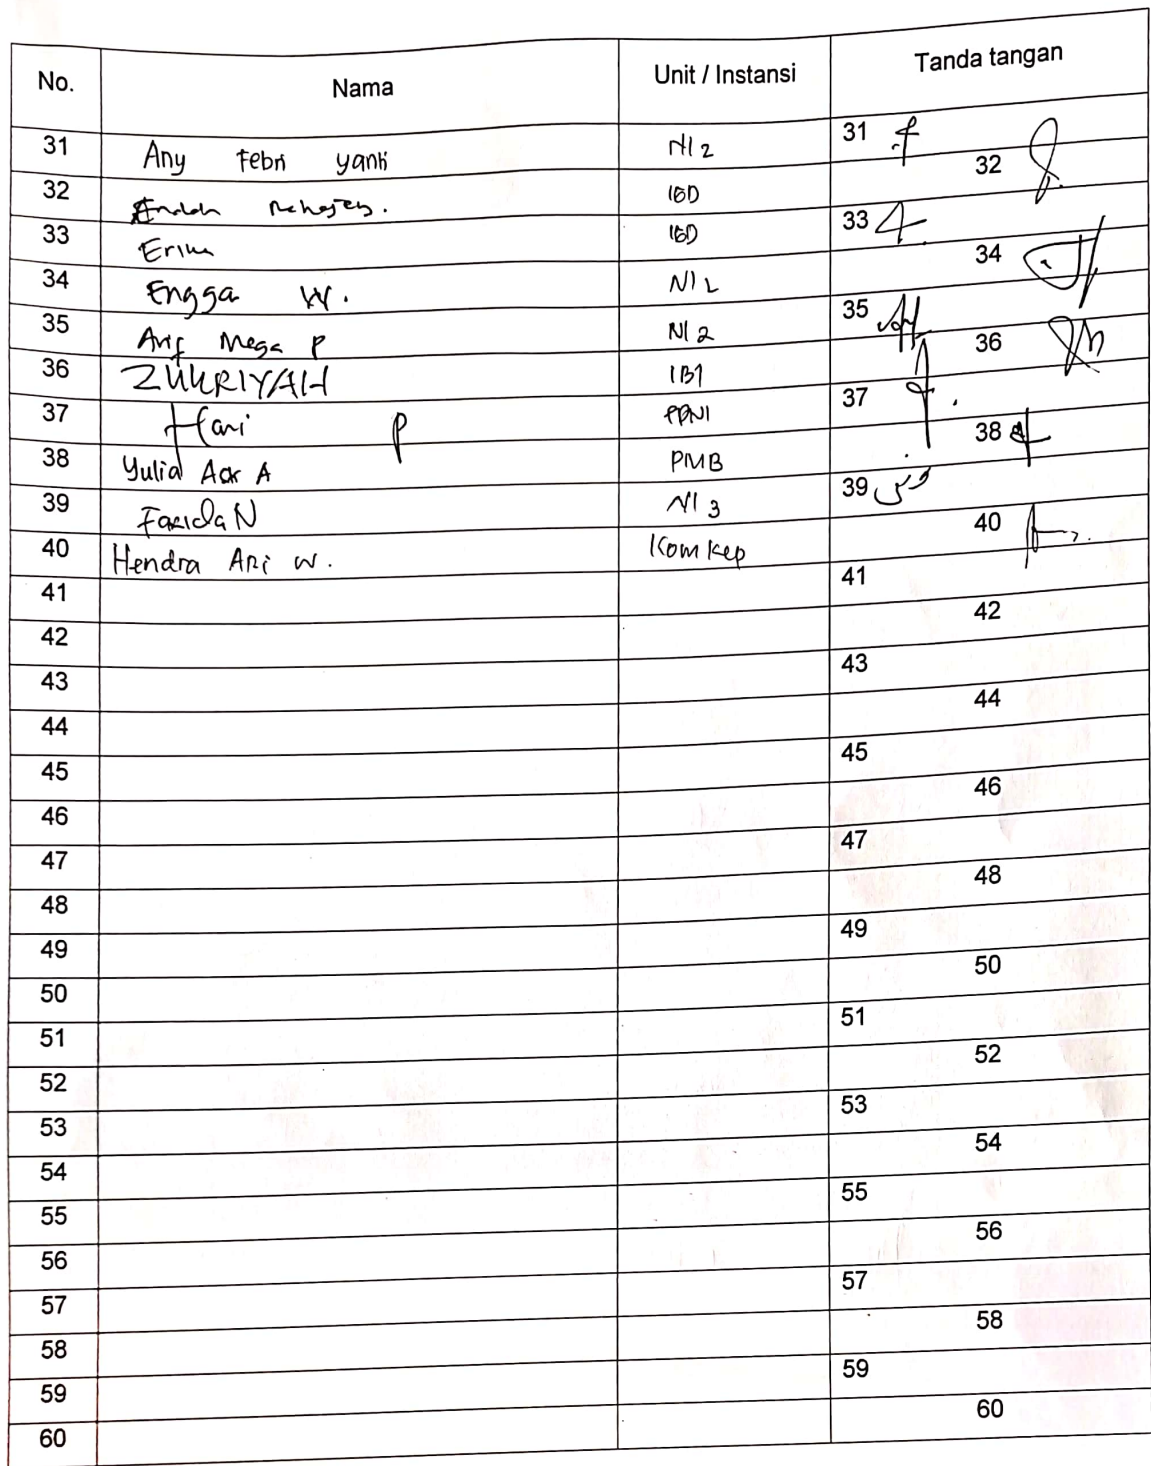 No. Nama Unit / Instansi Tanda tangan
31 Any Febri yanti NI 2 31
32 Endah IGD 32
33 Erika IGD 33
34 Engga W. NI 2 34
35 Arif Mega P NI 2 35
36 ZUKRIYAH IBI 36
37 Hari P PPNI 37
38 Yulia A PMB 38
39 Farida N NI 3 39
40 Hendra Ari W. Komkep 40
41 41
42 42
43 43
44 44
45 45
46 46
47 47
48 48
49 49
50 50
51 51
52 52
53 53
54 54
55 55
56 56
57 57
58 58
59 59
60 60